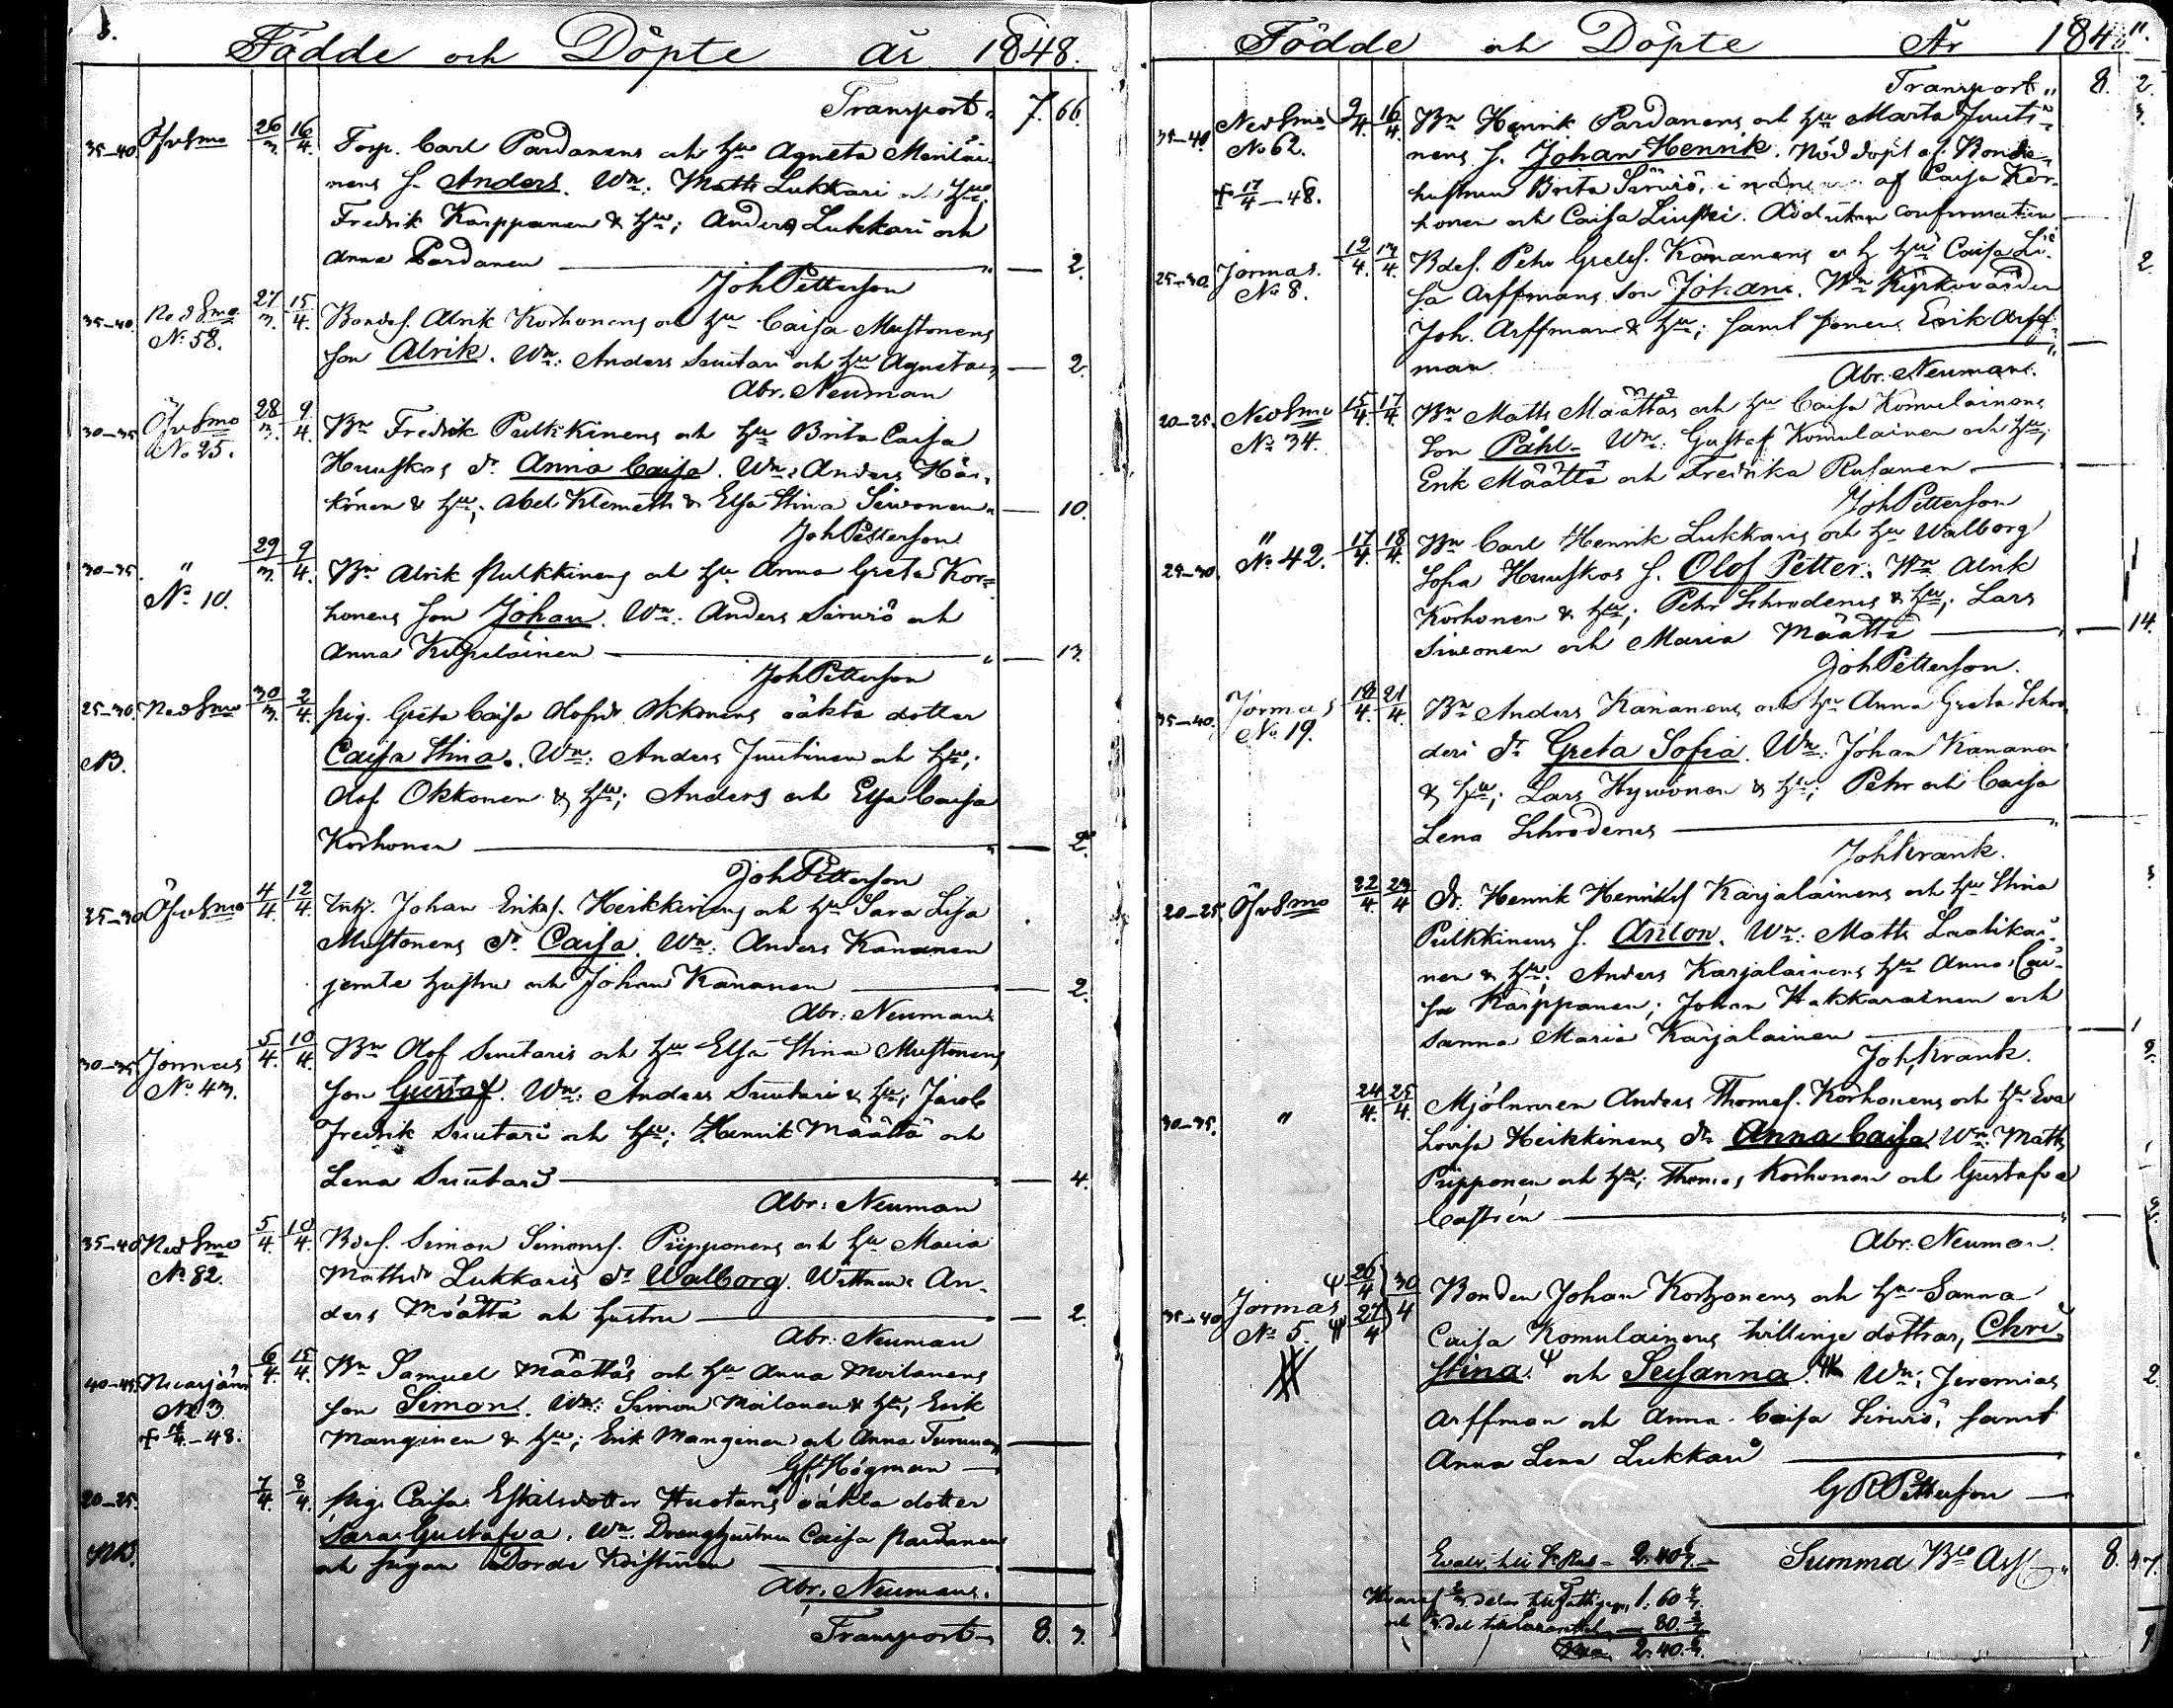 Födde och Döpte år 1848.
Transport 7. 66.
35-40. Öfv Smo 26/3. 16/4. Torp. Carl Pardanens och Hu Agneta
nens s. Anders. Wn: Matts Lukkari
Fredrik Karppanen & Hu; Anders Lukkari och
Anna Pardanen 2.
Joh Petterson
35-40. Ned Smo 27/3. 15/4. Bondes. Alrik Korhonens och Hu Caisa Mustonens
No 58.
son Alrik. Wn: Anders Suutari och Hu Agneta 2.
Abr. Neuman
30-35. Öfv Smo 28/3. 9/4. Bn Fredrik Pulkkinens och Hu Brita Caisa
No 25.
Huuskos dr Anna Caisa. Wn: Anders Här-
könen & Hu; Abel Klemetti & Elsa Stina Siwonen 10.
Joh Petterson
30-35. " 29/3. 9/4. Bn Alrik Pulkkinens och Hu Anna Greta Kor-
No 10.
honens son Johan. Wn: Anders Sirviö och
Anna 13.
Joh Petterson
25-30. Ned Smo 30/3. 2/4. pig. Greta Caisa Olofsdr Okkonens oäkta dotter
NB.
Caisa Stina. Wn: Anders Juutinen och Hu;
Olof Okkonen & Hu; Anders och Elsa Caisa
Korhonen 2.
Joh Petterson
25-30 Öfv Smo 4/4. 12/4. Inhy. Johan Eriks. Heikkinens och Hu Sara Lisa
Mustonens dr Caisa. Wn: Anders Kananen
jemte hustru och Johan Kananen 2.
Abr: Neuman
30-35 Jormas 5/4. 10/4. Bn Olof Suutaris och Hu Elsa Stina Mustonens
No 43.
son Gustaf. Wn: Anders Suutari & Hu; Jacob
Fredrik Suutari och Hu; Henrik Määttä och
Lena Suutari 4.
Abr: Neuman
35-40 Ned Smo 5/4. 10/4. Bdes. Simon Simonss. Piipponens och Hu Maria
No 82.
Mattsdr Lukkaris dr Walborg. Wittnen: An-
ders Määttä och hustru 2.
Abr: Neuman
40-45. 6/4. 15/4. Bn Samuel Määttäs och Hu Anna Moilanens
No 3.
son Simon. Wn: Simon Moilanen & Hu; Erik
-48.
Manginen & Hu; Erik Manginen och Anna
Högman
20-25. 7/4. 8/4. pig. Caisa Eskilsdotter Huotaris oäkta dotter
Sara Gustafva. Wn: Drenghustrun Caisa Pardanen
NB.
och pigan Dordi Koistinen
Abr. Neuman.
Transport 8. 3.
Födde och Döpte År 184
Transport 8.
35-40. Ned Smo 9/4. 16/4. Bn Henrik Pardanens och Hu Marta Juuti-
No 62.
nens s. Johan Henrik. Nöd döpt af Bonde-
† 17/4 -48.
hustrun Brita Sirviö, i närvaro af Caisa Kor-
honen och Caisa Död utan confirmation
25-30 Jormas 12/4. 13/4. Bdes. Petr Gretes. Kananens och Hu Caisa Li-
No 8.
sa Arffmans son Johan. Wn Kyrkovärden
Joh. Arffman & Hu; samt sonen Erik Arff-
man
Abr. Neuman.
20-25. Ned Smo 15/4. 17/4. Bn Matts Määttäs och Hu Caisa Komulainens
No 34.
son Påhl. Wn: Gustaf Komulainen och Hu;
Erik Määttä och Fredrika Rusanen
Joh Petterson
25-30. " 17/4. 18/4. Bn Carl Henrik Lukkaris och Hu Walborg
No 42.
Sofia Huuskos s. Olof Petter. Wn Alrik
Korhonen & Hu; Petr Schroderus & Hu; Lars
Siwonen och Maria Määttä 14.
Joh Petterson.
35-40. Jormas 18/4. 21/4. Bn Anders Kananens och Hu Anna Greta Schro-
No 19.
deri dr Greta Sofia. Wn: Johan Kananen
& Hu; Lars Hywönen & Hu; Petr och Caisa
Lena Schroderus
Joh Krank.
20-25 Öfv Smo 22/4. 23/4 dr. Henrik Henriks Karjalainens och Hu Stina
Pulkkinens s. Anton. Wn: Matts Laatikai-
nen & Hu; Anders Karjalainens Hu Anna Cai-
sa Karppanen; Johan Hakkarainen och
Sanna Maria Karjalainen
Joh Krank.
30-35. " 24/4. 25/4. Mjölnaren Anders Thomas. Korhonens och Hu Eva
Lovisa Heikkinens dr Anna Caisa Wn: Matts
Piipponen och Hu; Thomas Korhonen och Gustafva
Castrén
Abr. Neuman.
35-40 Jormas 26/4 27/4 30/4 Bonden Johan Korhonens och Hu Sanna
No 5.
Caisa Komulainens tvillinge döttrar, Chri
stina och Susanna. Wn: Jeremias
Arffman och Anna Caisa Sirviö, samt
Anna Lena Lukkari
G R Petterson
2.40 Summa Bco 8. 47.
1.60
80
2.40